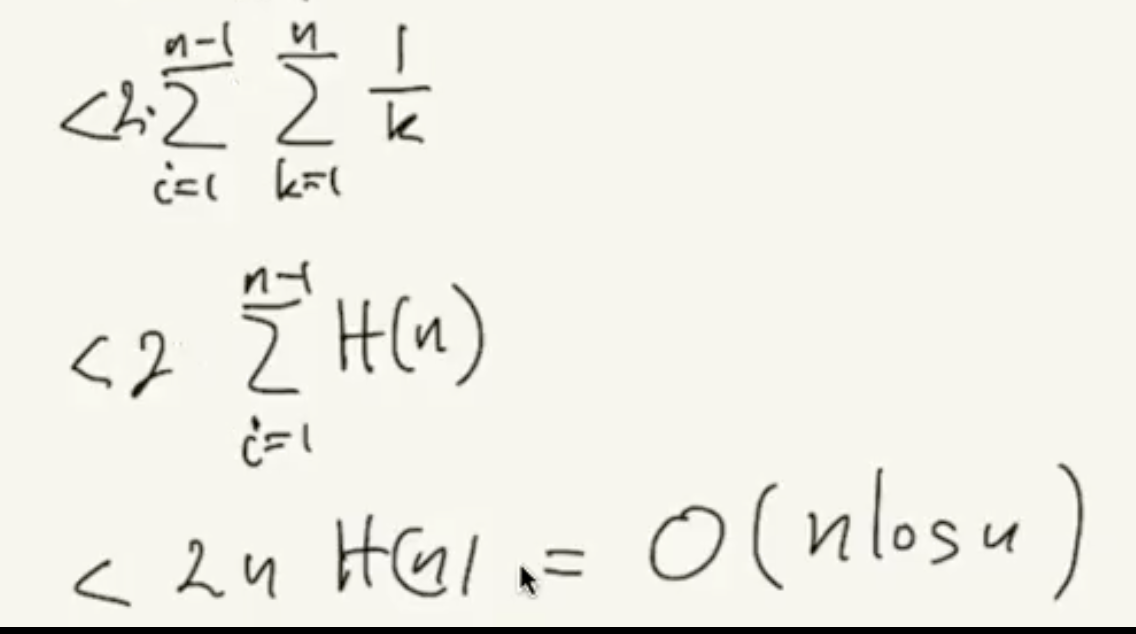 < 2 · ∑_{i=1}^{n-1} ∑_{k=1}^{n} 1/k
< 2 ∑_{i=1}^{n-1} H(n)
< 2n H(n) = O(n log n)